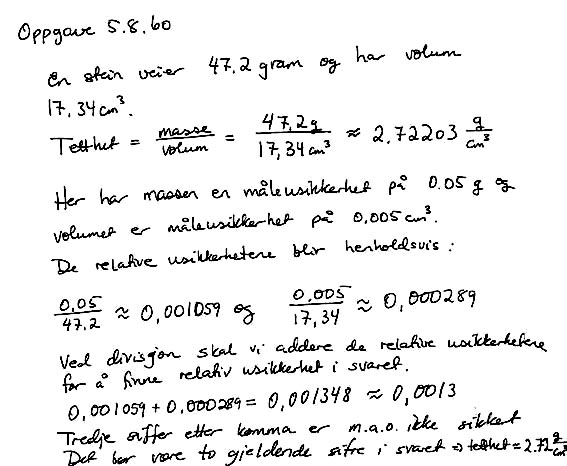 Oppgave 5.8.60
En stein veier 47,2 gram og har volum
17,34 cm³.
Tetthet = masse/volum = 47,2g/17,34 cm³ ≈ 2,72203 g/cm³
Her har massen en måleusikkerhet på 0.05 g og
volumet er måleusikkerhet på 0,005 cm³.
De relative usikkerhetene blir henholdsvis :
0,05/47,2 ≈ 0,001059 og 0,005/17,34 ≈ 0,000289
Ved divisjon skal vi addere de relative usikkerhetene
for å finne relativ usikkerhet i svaret.
0,001059 + 0,000289 = 0,001348 ≈ 0,0013
Tredje siffer etter komma er m.a.o. ikke sikkert
Det bør være to gjeldende sifre i svaret ⇒ tetthet = 2.72 g/cm³